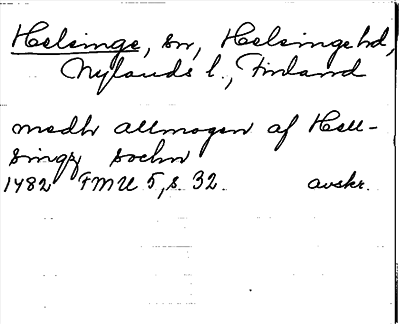 Helsinge, sn, Helsinge hd,
Nylands l., Finland
medh allmogen af Hell-
singe sochn
1482 FMU 5, s. 32. avskr.